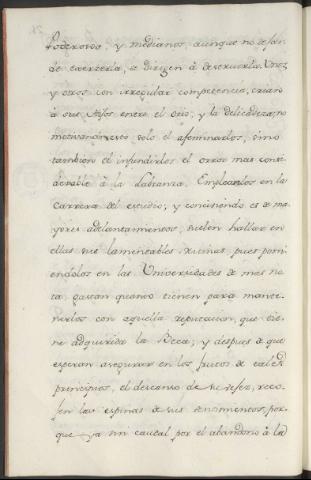 Poderosos, y medianos, aunque no dejan
de exercerla, se dirigen à destruirla. Unos,
y otros con irregular competencia, crian
à sus hijos entre el ocio, y la delicadeza, no
motivandoseles solo el afeminarlos, sino
tambien el infundirles el orror mas consi
derable à la Labranza. Emplearlos en la
Carrera del estudio; y consistiendo es de ma
yores adelantamientos, suelen hallar en
ellas sus lamentables ruinas, pues poni
endolos en las Universidades de mas no
ta gastan quanto tienen para mante
nerlos con aquella reputacion, que tie
ne adquirida la Beca; y despues de que
esperan asegurar en los frutos de tales
principios, el descanso de su vejez, reco
jen las espinas de sus sentimientos, por
que ya sin caudal por el abandono à la